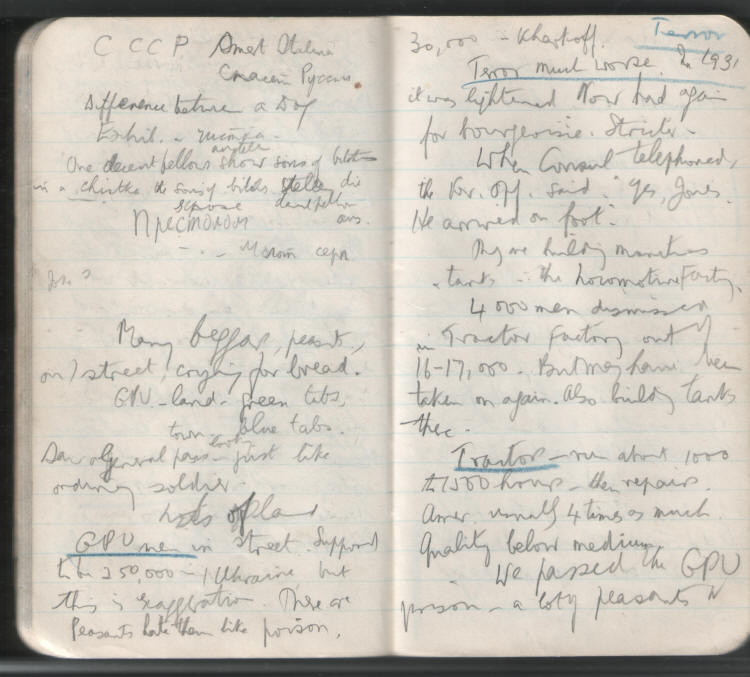 C C C P Смерт Сталина
Спасет Руссию.
Difference between a Dog
Exhib. -
another
One decent fellow shows sons of bitches
in a the sons of bitches die
suppose decent fellow
Many beggars, peasants,
on / street, crying for bread.
GPU - land - green tabs,
town - blue tabs.
Saw a General pass - looks just like
ordinary soldier.
Lots of
GPU men in street. Supposed
to be 250,000 - / Ukraine, but
this is exaggeration. There are
Peasants hate them like poison.
30,000 - Kharkoff.
Terror
Terror much worse. In 1931
it was lightened. Now bad again
for bourgeoisie. Stricter -
When Consul telephoned,
the For. Off. said. "Yes, Jones.
He arrived on foot".
They are building munitions
tanks in the Locomotive Facty.
4000 men dismissed
in Tractor Factory out of
16-17,000. But may have been
taken on again. Also building tanks
there.
Tractors - run about 1000
to 1500 hours - then repairs.
Amer. usually 4 times as much.
Quality below medium.
We passed the GPU
prison - a lot of peasants